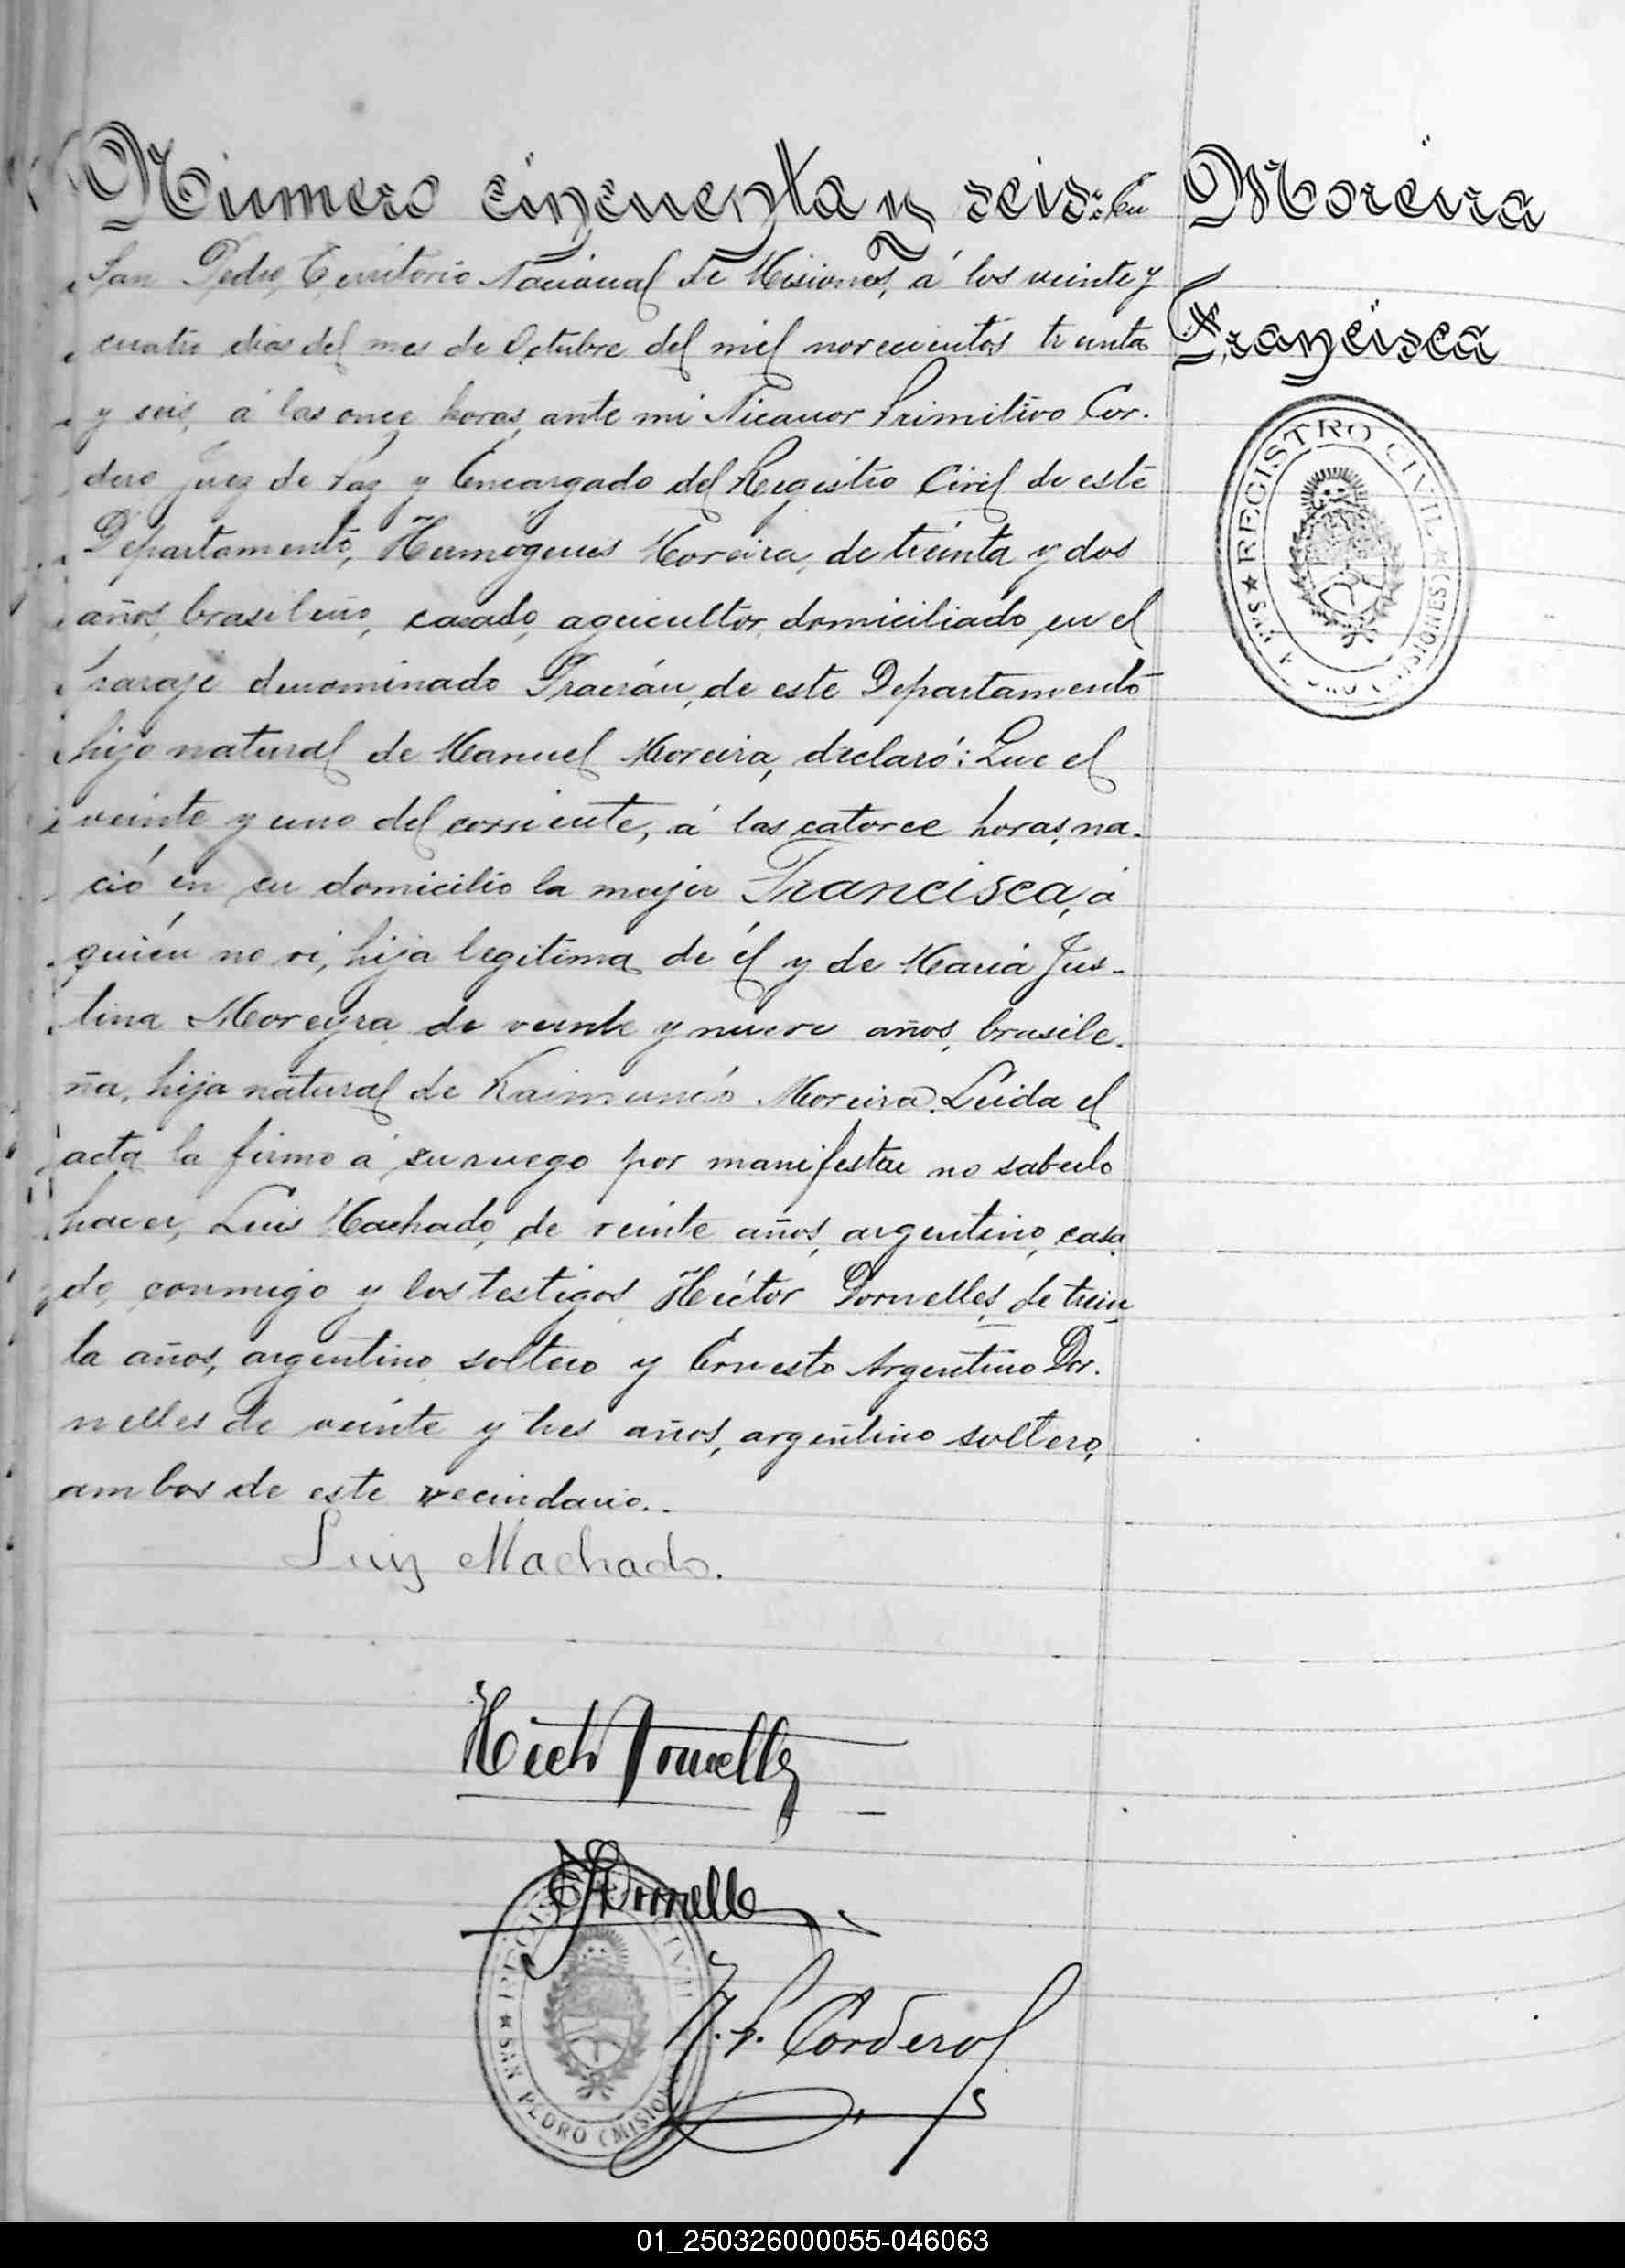 Número cincuenta y seis: En
San Pedro, Territorio Nacional de Misiones, á los veinte y
cuatro dias del mes de Octubre del mil novecientos treinta
y seis, á las once horas, ante mi Nicanor Primitivo Cor-
dero Juez de Paz y Encargado del Registro Civil de este
Departamento, Hermógenes Moreira, de treinta y dos
años, brasileño, casado, agricultor, domiciliado en el
paraje denominado Tracrán, de este Departamento
hijo natural de Manuel Moreira, declaró: Que el
veinte y uno del corriente, á las catorce horas, na-
ció en su domicilio la mujer Francisca, á
quién no vi, hija legitima de él y de Maria Jus-
tina Moreyra de veinte y nueve años, brasile-
ña, hija natural de Raimundo Moreira. Leida el
acta la firmo á su ruego por manifestar no saberlo
hacer, Luis Machado, de veinte años, argentino, casa-
do, conmigo y los testigos Héctor Dornelles, de trein
ta años, argentino soltero y Ernesto Argentino Dor-
nelles de veinte y tres años, argentino soltero,
ambos de este vecindario..
Moreira
Francisca
★ REGISTRO CIVIL ★
SAN PEDRO (MISIONES)
Luiz Machado.
Héctor Dornelles
E A Dornelles
N. P. Cordero
★ REGISTRO CIVIL
SAN PEDRO (MISIO
01_250326000055-046063